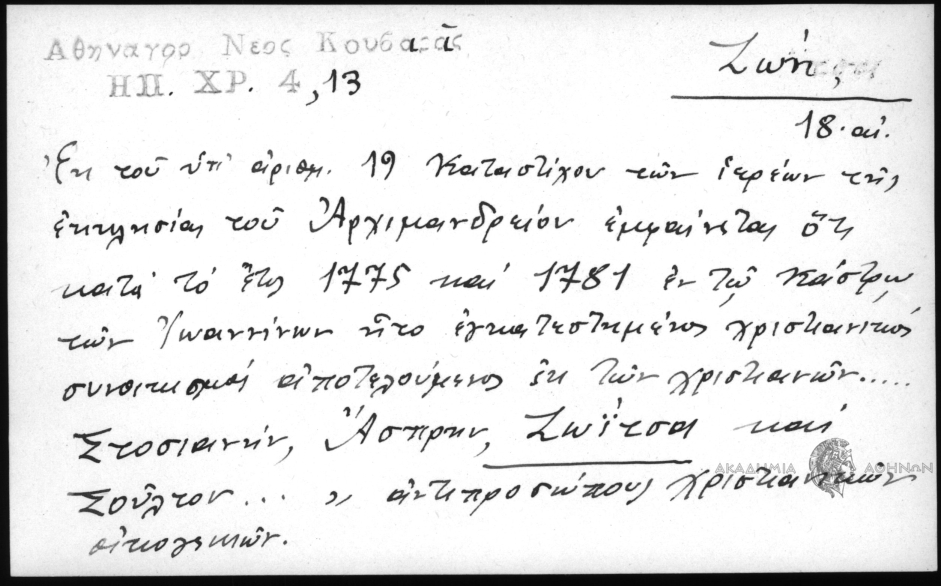 Αθηναγορ Νεος Κουβαρᾶς
ΗΠ. ΧΡ. 4, 13
Ζωή,
18. αἰ.
Ἐκ τοῦ ὑπ' ἀριθμ. 19 Καταστίχου τῶν ἱερέων τῆς
ἐκκλησίας τοῦ Ἀρχιμανδρείου ἐμφαίνεται ὅτι
κατά τό ἔτος 1775 καί 1781 ἐν τῷ Κάστρῳ
τῶν Ἰωαννίνων ἦτο ἐγκατεστημένος χριστιανικός
συνοικισμός ἀποτελούμενος ἐκ τῶν χριστιανῶν.....
Στοσιανήν, Ἄσπρην, Ζωΐτσα καί
Σοῦλτον... ,, ἀντιπροσώπους χριστιανικῶν
οἰκογενειῶν.
ΑΚΑΔΗΜΙΑ ΑΘΗΝΩΝ